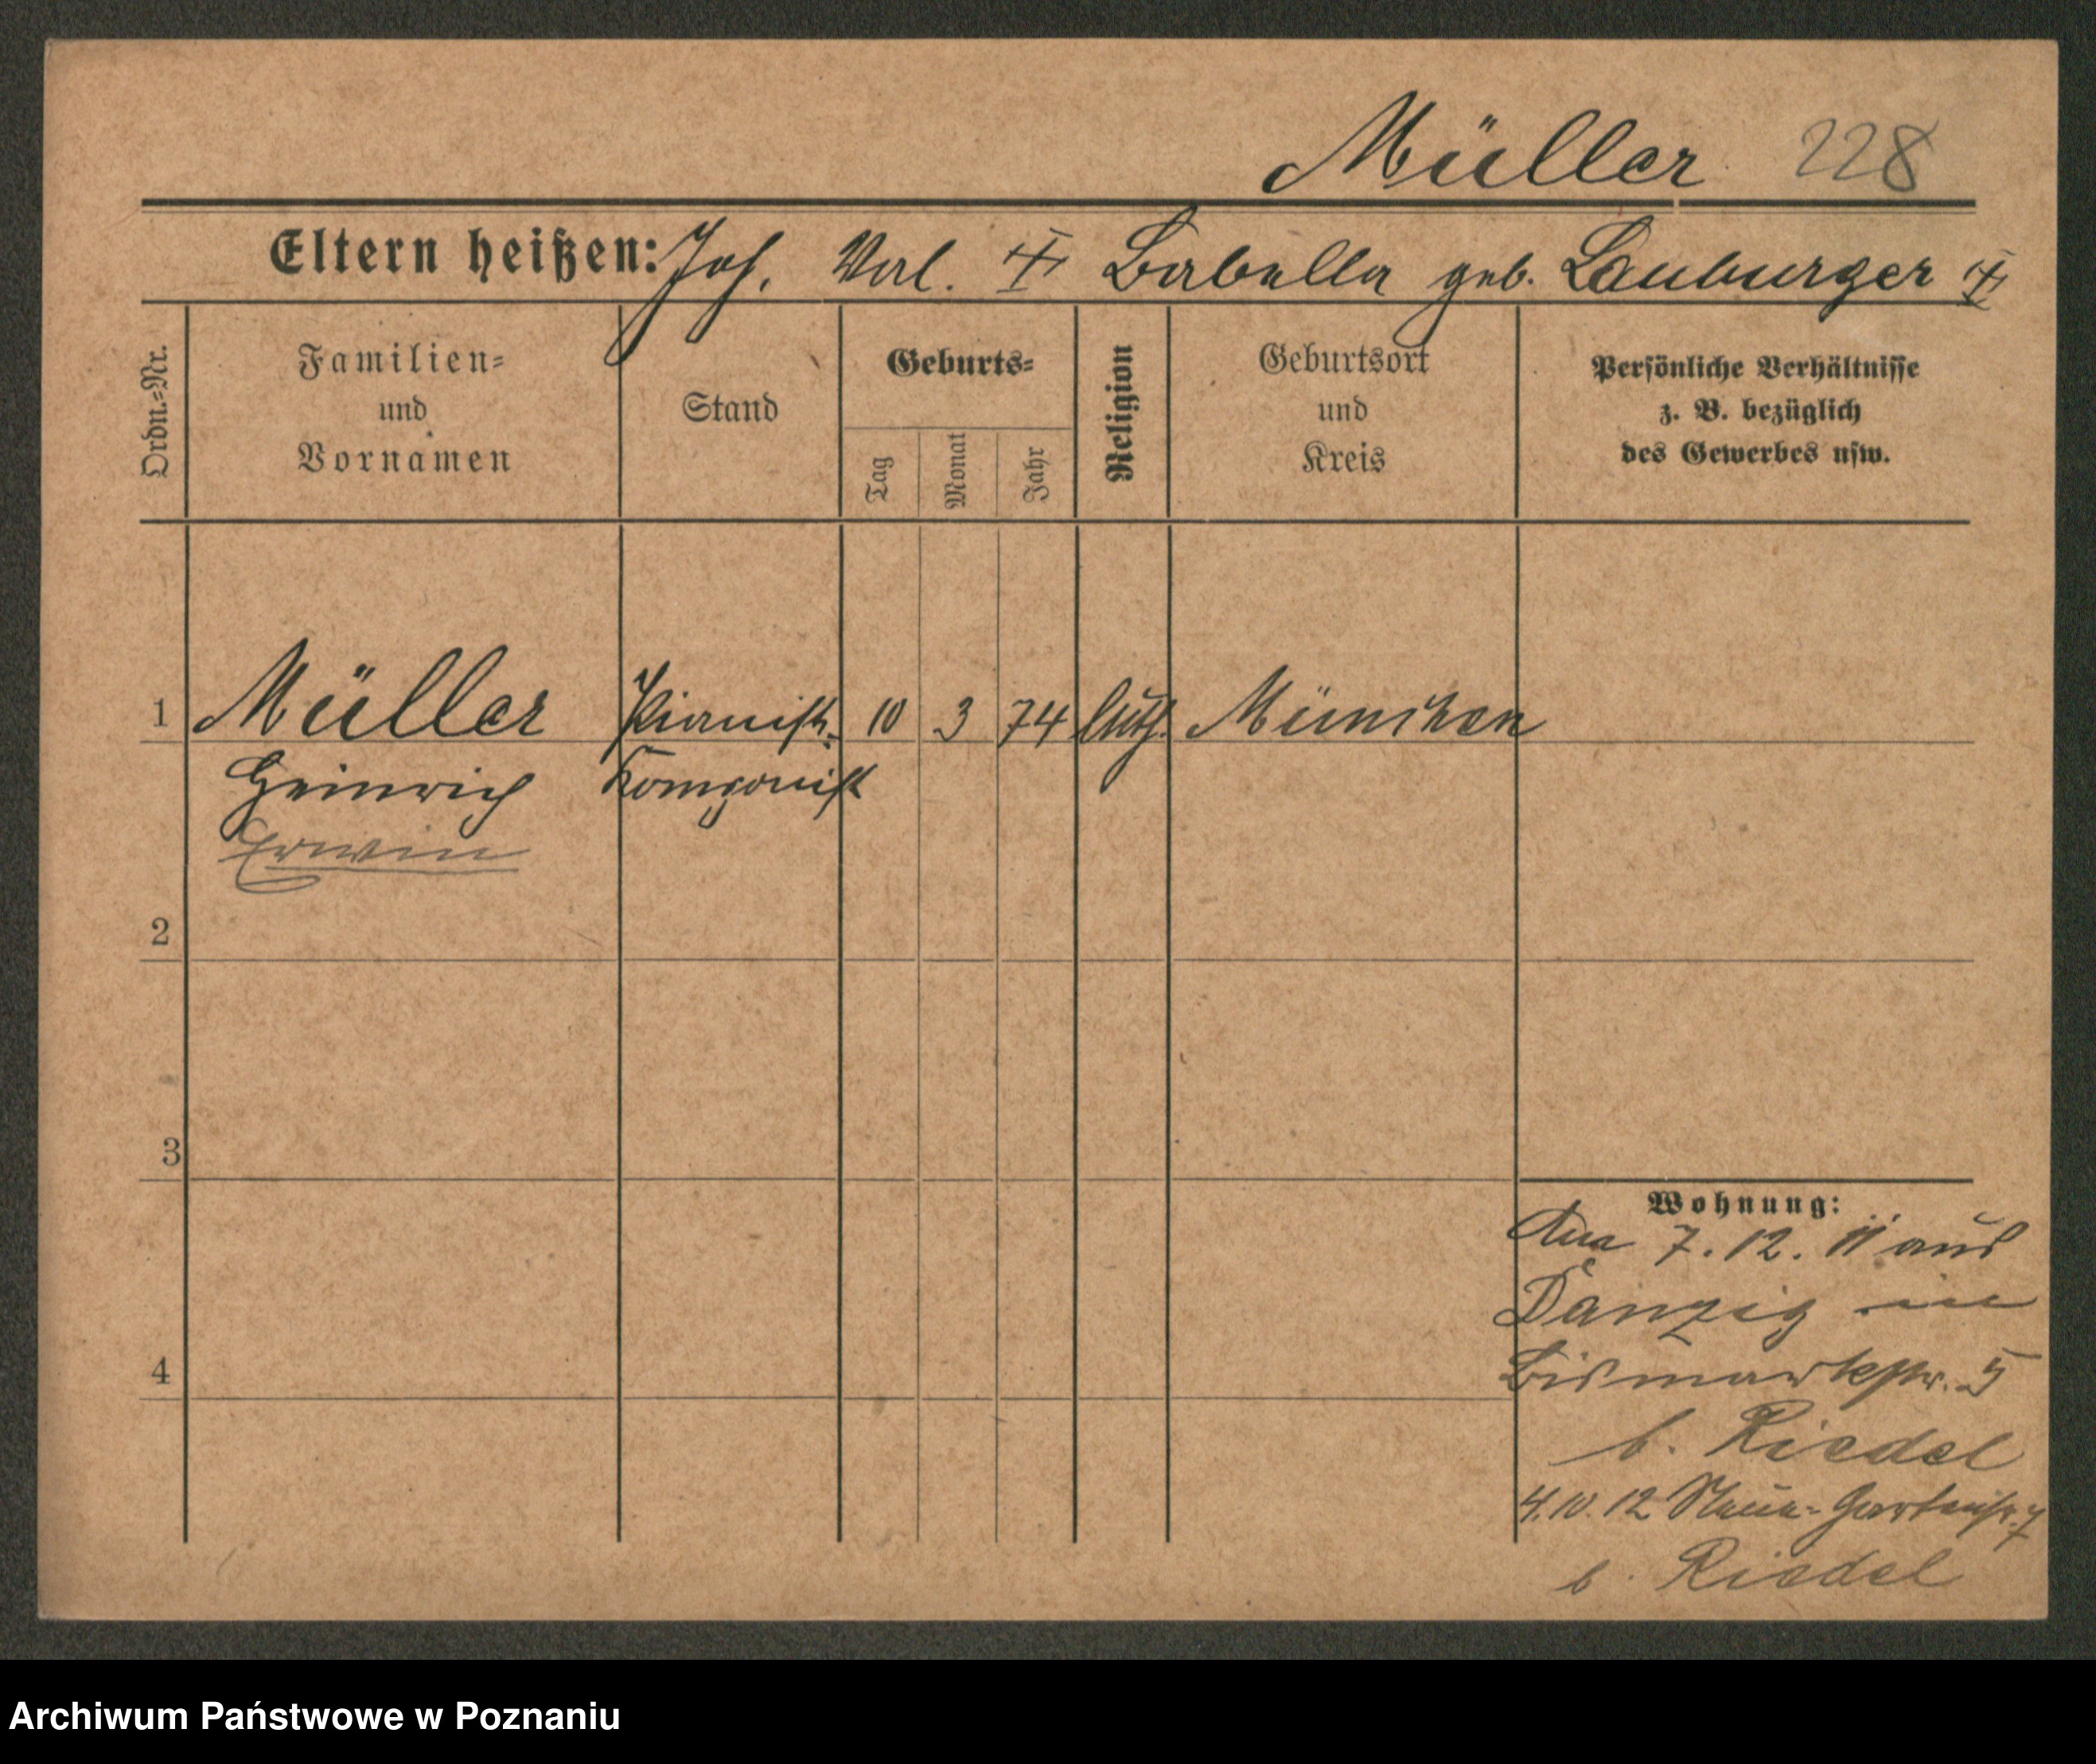 Müller 228
Eltern heißen: Joh. Val. Babella geb. Lauburger
Ordn.-Nr.
Familien-
und
Vornamen
Stand
Geburts-
Tag
Monat
Jahr
Religion
Geburtsort
und
Kreis
Persönliche Verhältnisse
z. B. bezüglich
des Gewerbes usw.
1 Müller Pianist- 10 3 74 luth. München
Heinrich Komponist
Erwin
2
3
4
Wohnung:
7. 12. 11 aus
Danzig in
Bismarkstr. 5
b. Riedel
4.10.12 Neue-Gartenstr. 7
b. Riedel
Archiwum Państwowe w Poznaniu